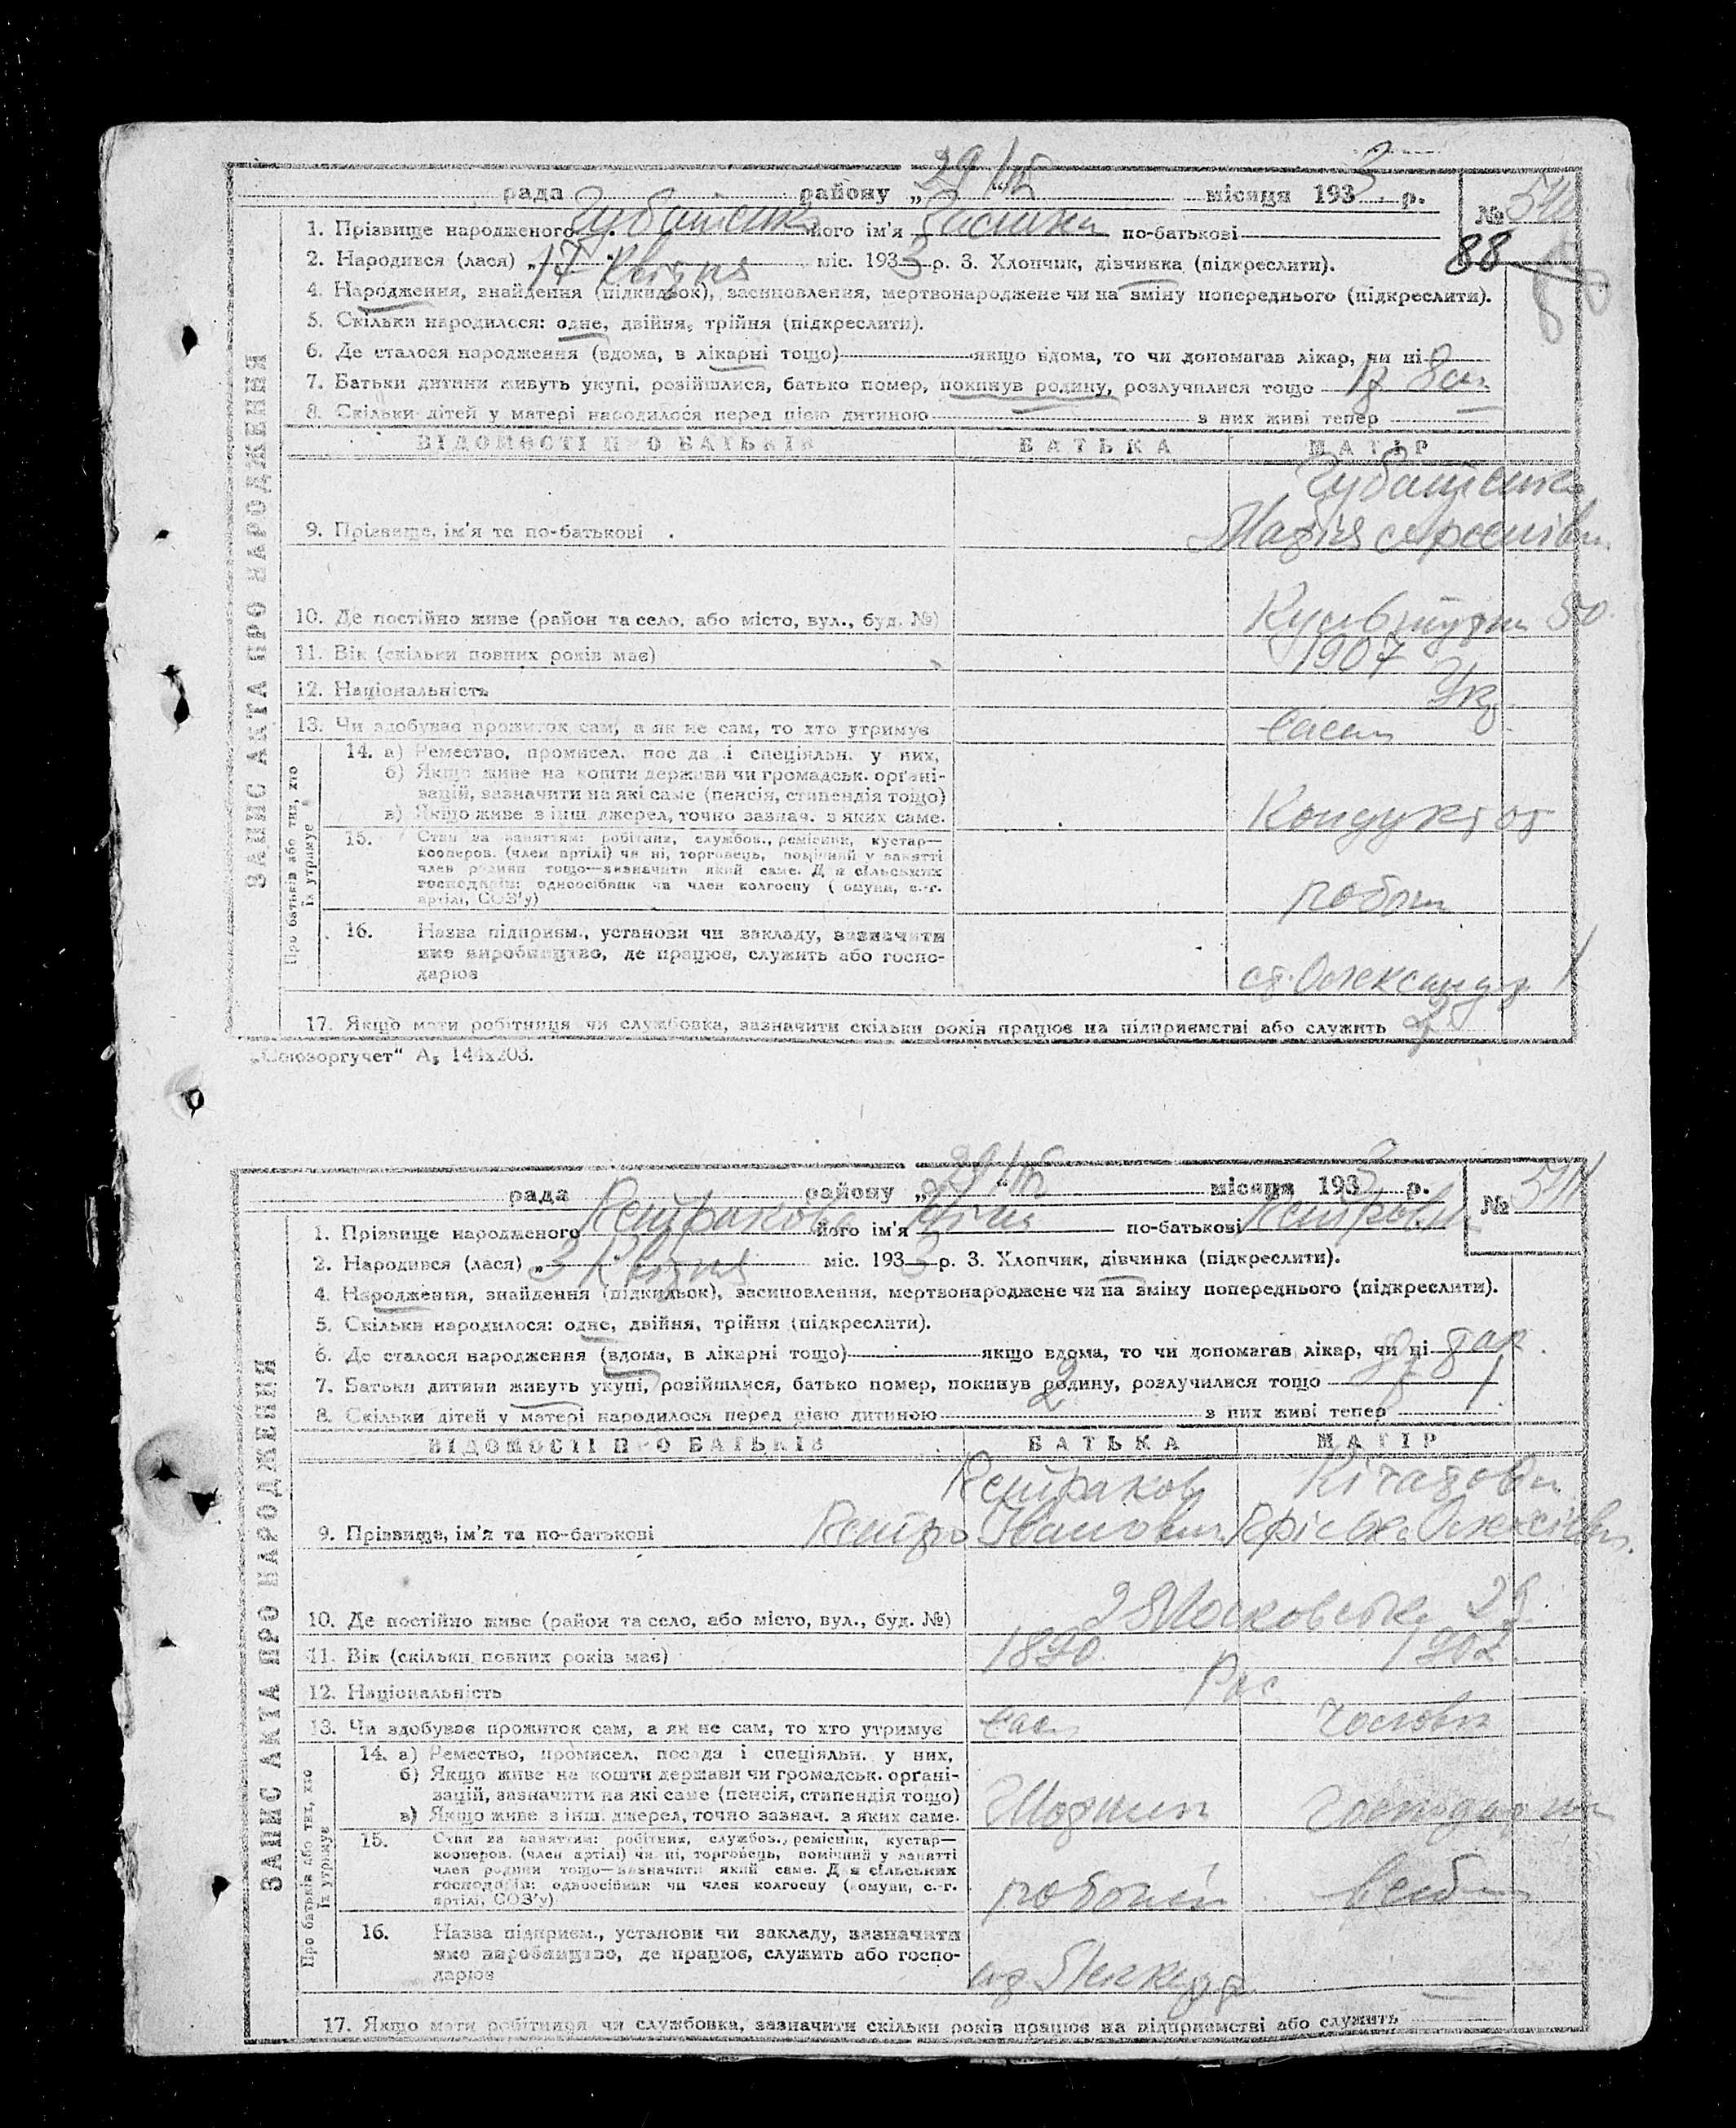 рада району „29/IV“ місяця 1933 р.
№ 540
1. Прізвище народженого його ім'я по-батькові
88
2. Народився (лася) „17“ Квітня міс. 1933 р. 3. Хлопчик, дівчинка (підкреслити).
4. Народження, знайдення (підкидьок), засиновлення, мертвонароджене чи на зміну попереднього (підкреслити).
5. Скільки народилося: одне, двійня, трійня (підкреслити).
6. Де сталося народження (вдома, в лікарні тощо) якщо вдома, то чи допомагав лікар, чи ні
7. Батьки дитини живуть укупі, розійшлися, батько помер, покинув родину, розлучилися тощо
8. Скільки дітей у матері народилося перед цією дитиною з них живі тепер
ВІДОМОСТІ ПРО БАТЬКІВ БАТЬКА МАТІР
9. Прізвище, ім'я та по-батькові
Марія
10. Де постійно живе (район та село, або місто, вул., буд. №) 50
11. Вік (скільки повних років має) 1907
12. Національність Укр.
13. Чи здобуває прожиток сам, а як не сам, то хто утримує сама
14. а) Ремество, промисел, посада і спеціяльн. у них,
б) Якщо живе на кошти держави чи громадськ. органі-
зацій, зазначити на які саме (пенсія, стипендія тощо)
в) Якщо живе з інш. джерел, точно зазнач. з яких саме. Кондуктор
15. Стан за заняттям: робітник, службов., ремісник, кустар—
кооперов. (член артілі) чи ні, торговець, помічний у занятті
член родини тощо—визначити який саме. Для сільських
господарів: одноосібник чи член колгоспу (комуни, с.-г.
артілі, СОЗ'у)
робітн
16. Назва підприєм., установи чи закладу, зазначити
яке виробництво, де працює, служить або госпо-
дарює
ст. Олександр
17. Якщо мати робітниця чи службовка, зазначити скільки років працює на підприємстві або служить 2
ЗАПИС АКТА ПРО НАРОДЖЕННЯ
Про батьків або тих, хто
їх утримує
„Союзоргучет“ А5 144х203.
рада району „29/IV“ місяця 1933 р.
№ 541
1. Прізвище народженого Петракова його ім'я Ніна по-батькові Петровн
2. Народився (лася) „3 Квітня міс. 1933 р. 3. Хлопчик, дівчинка (підкреслити).
4. Народження, знайдення (підкидьок), засиновлення, мертвонароджене чи на зміну попереднього (підкреслити).
5. Скільки народилося: одне, двійня, трійня (підкреслити).
6. Де сталося народження (вдома, в лікарні тощо) якщо вдома, то чи допомагав лікар, чи ні
7. Батьки дитини живуть укупі, розійшлися, батько помер, покинув родину, розлучилися тощо
8. Скільки дітей у матері народилося перед цією дитиною 2 з них живі тепер 1
ВІДОМОСТІ ПРО БАТЬКІВ БАТЬКА МАТІР
Петраков
9. Прізвище, ім'я та по-батькові Петро Іванович
10. Де постійно живе (район та село, або місто, вул., буд. №) 2 Московська
11. Вік (скільки повних років має) 1890 1902
12. Національність Рос
13. Чи здобуває прожиток сам, а як не сам, то хто утримує сам чоловік
14. а) Ремество, промисел, посада і спеціяльн. у них,
б) Якщо живе на кошти держави чи громадськ. органі-
зацій, зазначити на які саме (пенсія, стипендія тощо)
в) Якщо живе з інш. джерел, точно зазнач. з яких саме.
15. Стан за заняттям: робітник, службов., ремісник, кустар—
кооперов. (член артілі) чи ні, торговець, помічний у занятті
член родини тощо—визначити який саме. Для сільських
господарів: одноосібник чи член колгоспу (комуни, с.-г.
артілі, СОЗ'у)
16. Назва підприєм., установи чи закладу, зазначити
яке виробництво, де працює, служить або госпо-
дарює
17. Якщо мати робітниця чи службовка, зазначити скільки років працює на підприємстві або служить
ЗАПИС АКТА ПРО НАРОДЖЕННЯ
Про батьків або тих, хто
їх утримує